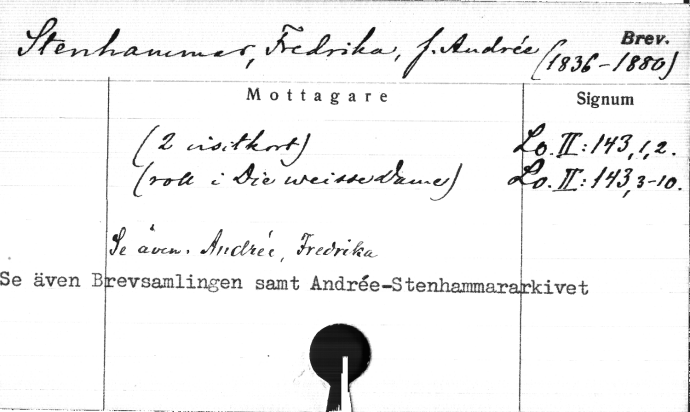 Brev.
Stenhammar, Fredrika, f. Andrée (1836-1880)
Mottagare Signum
(2 visitkort) Lo. II: 143, 1, 2.
(roll i Die weisse Dame) Lo. II: 143, 3-10.
Se även. Andrée, Fredrika
Se även Brevsamlingen samt Andrée-Stenhammararkivet